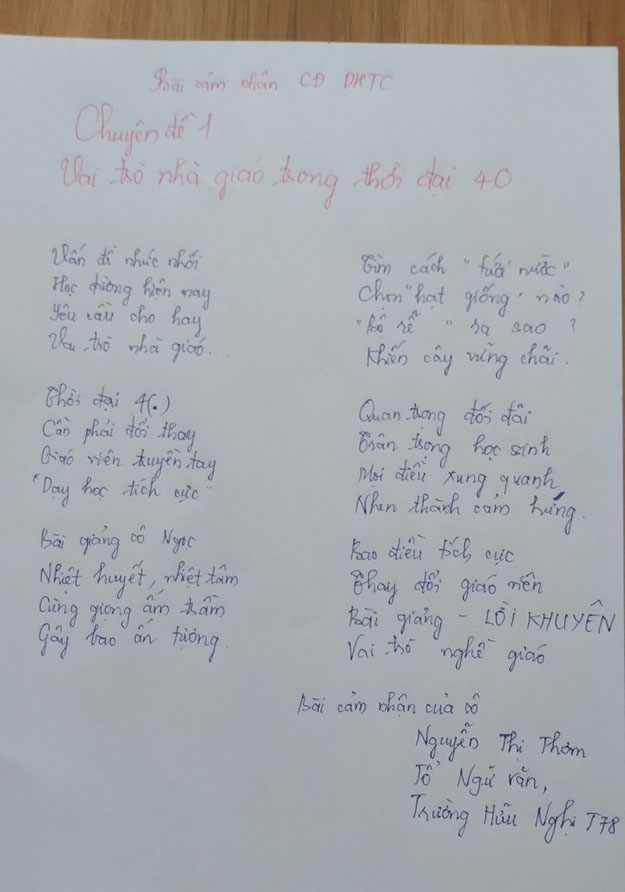 Bài cảm nhận CĐ DHTC
Chuyên đề 1
Vai trò nhà giáo trong thời đại 4.0
Vấn đề nhức nhối
Học đường hiện nay
Yêu cầu cho hay
Vai trò nhà giáo...
Thời đại 4(.)
Cần phải đổi thay
Giáo viên truyền tay
"Dạy học tích cực"
Bài giảng cô Ngọc
Nhiệt huyết, nhiệt tâm
Cùng giọng ấm trầm
Gây bao ấn tượng.
Tìm cách "tưới nước"
Chọn "hạt giống" nào?
"Bộ rễ" ra sao?
Khiến cây vững chãi.
Quan trọng đối đãi
Trân trọng học sinh
Mọi điều xung quanh
Nhen thành cảm hứng.
Bao điều tích cực
Thay đổi giáo nên
Bài giảng - LỜI KHUYÊN
Vai trò nghề giáo
Bài cảm nhận của cô
Nguyễn Thị Thơm
Tổ Ngữ văn,
Trường Hữu Nghị T78